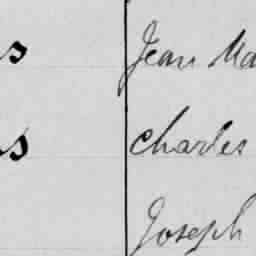 s Jean Ma
s Charles
Joseph